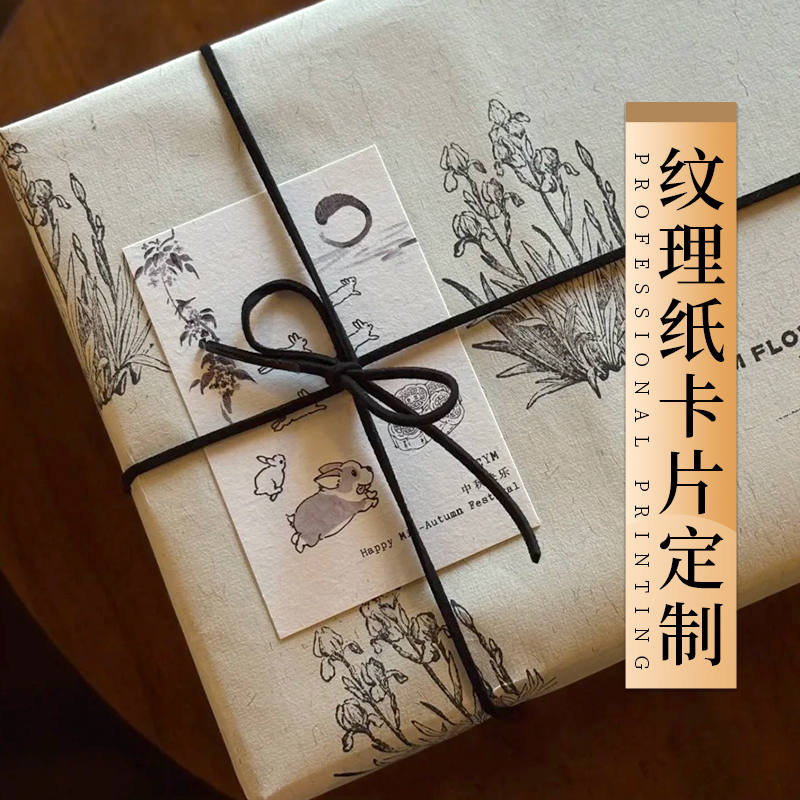 纹理纸卡片定制
PROFESSIONAL PRINTING
M FLO
CYM
中秋快乐
Happy Mid-Autumn Festival